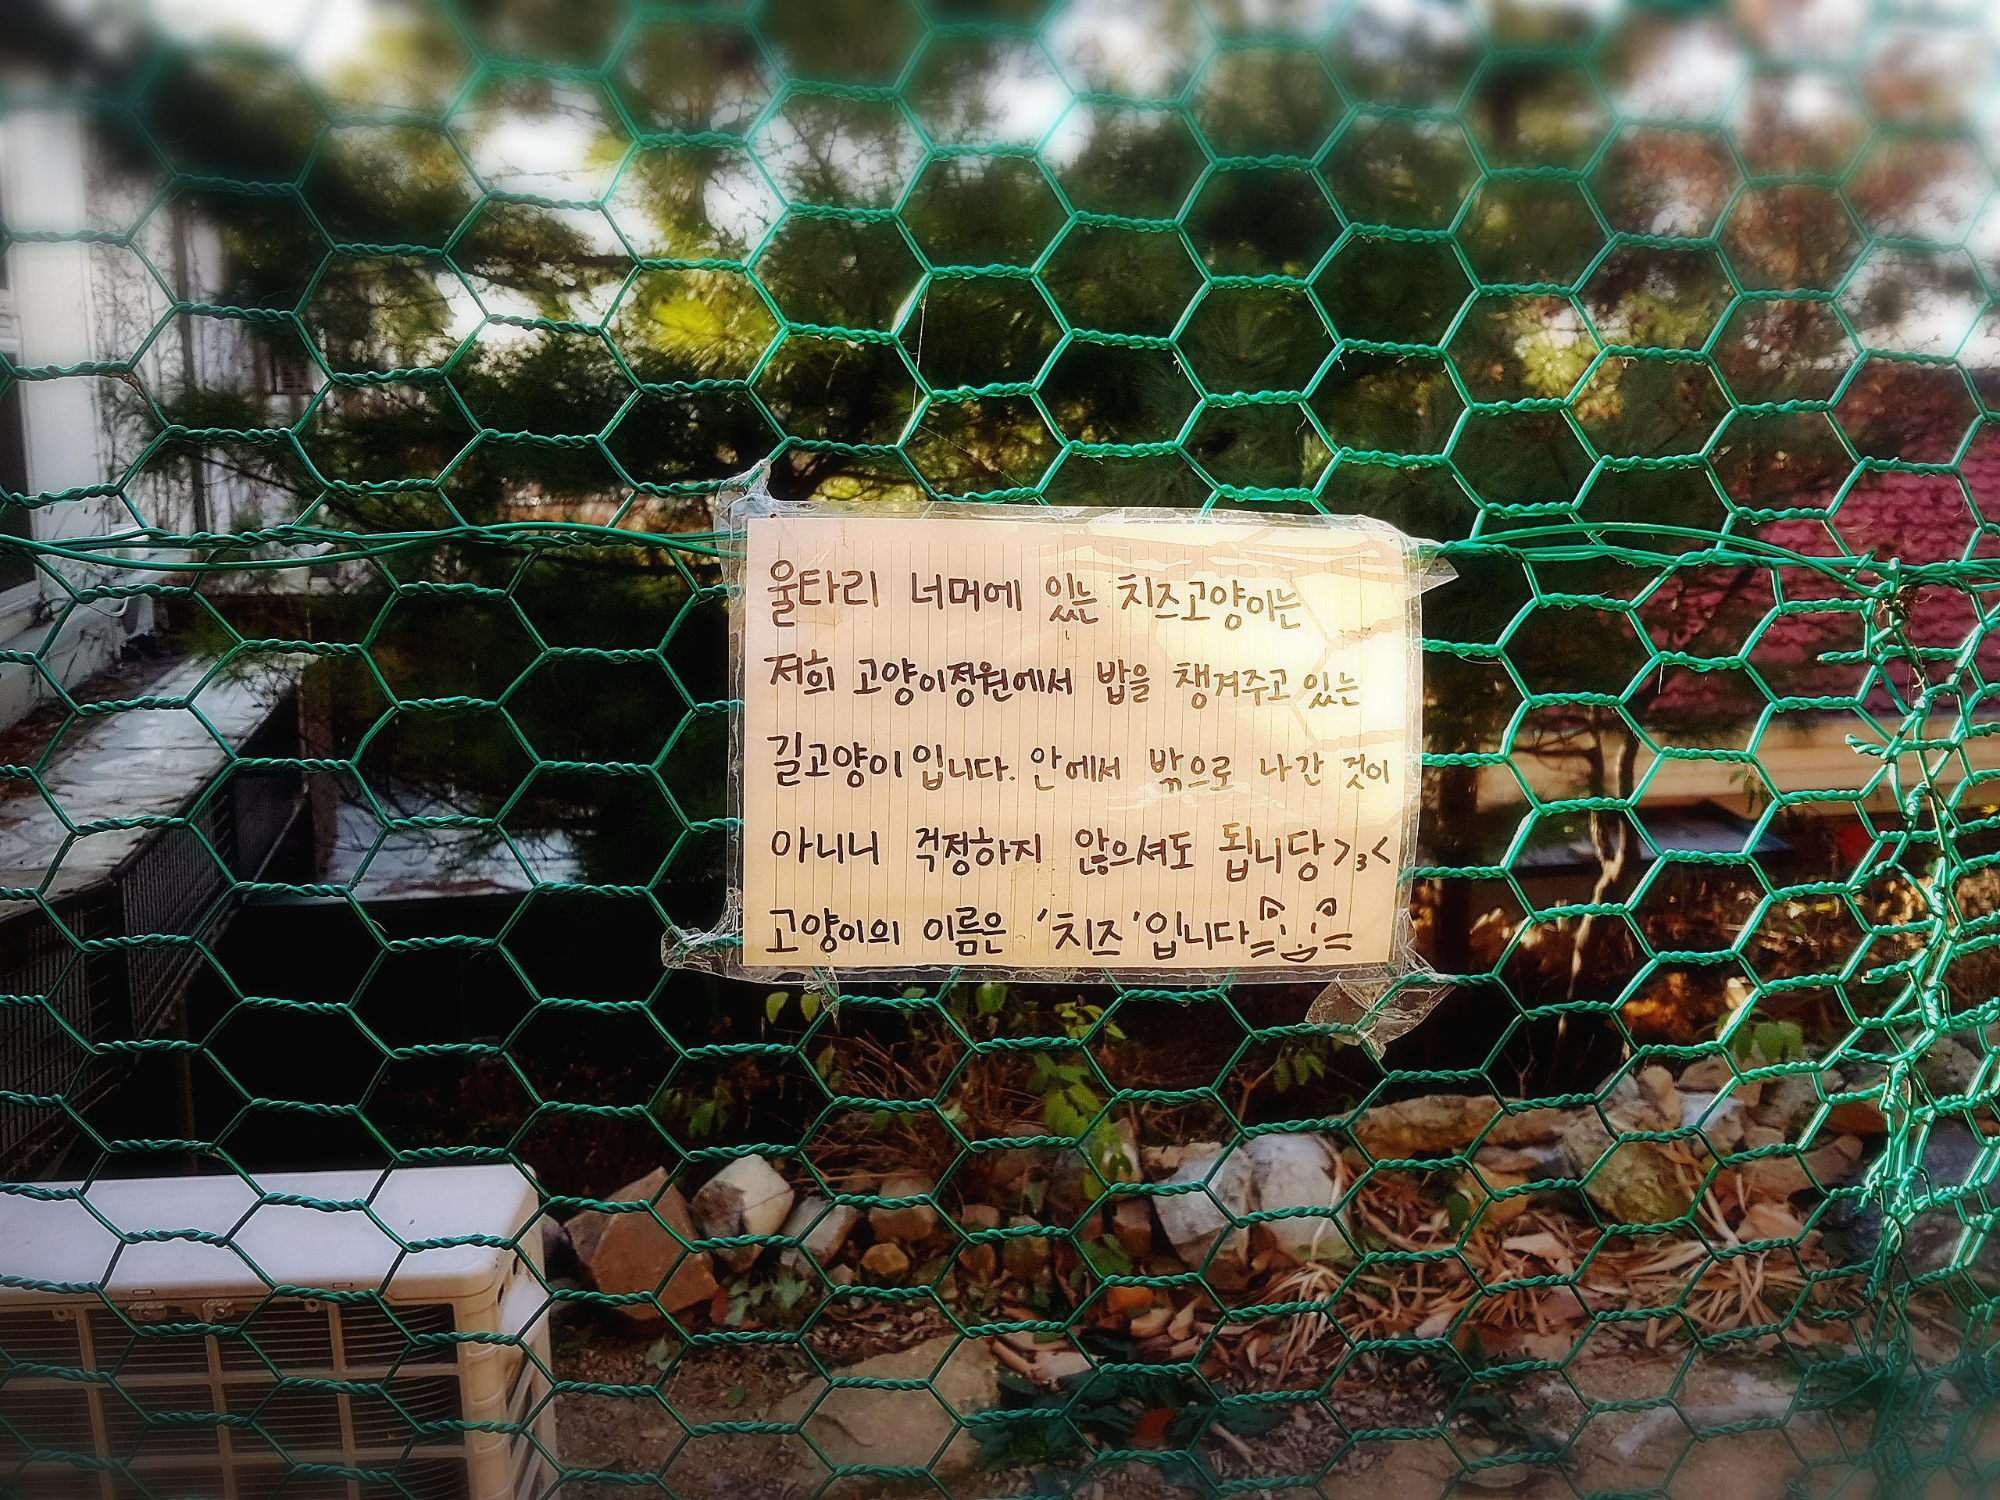 울타리 너머에 있는 치즈고양이는
저희 고양이정원에서 밥을 챙겨주고 있는
길고양이입니다. 안에서 밖으로 나간 것이
아니니 걱정하지 않으셔도 됩니당 >3<
고양이의 이름은 '치즈'입니다